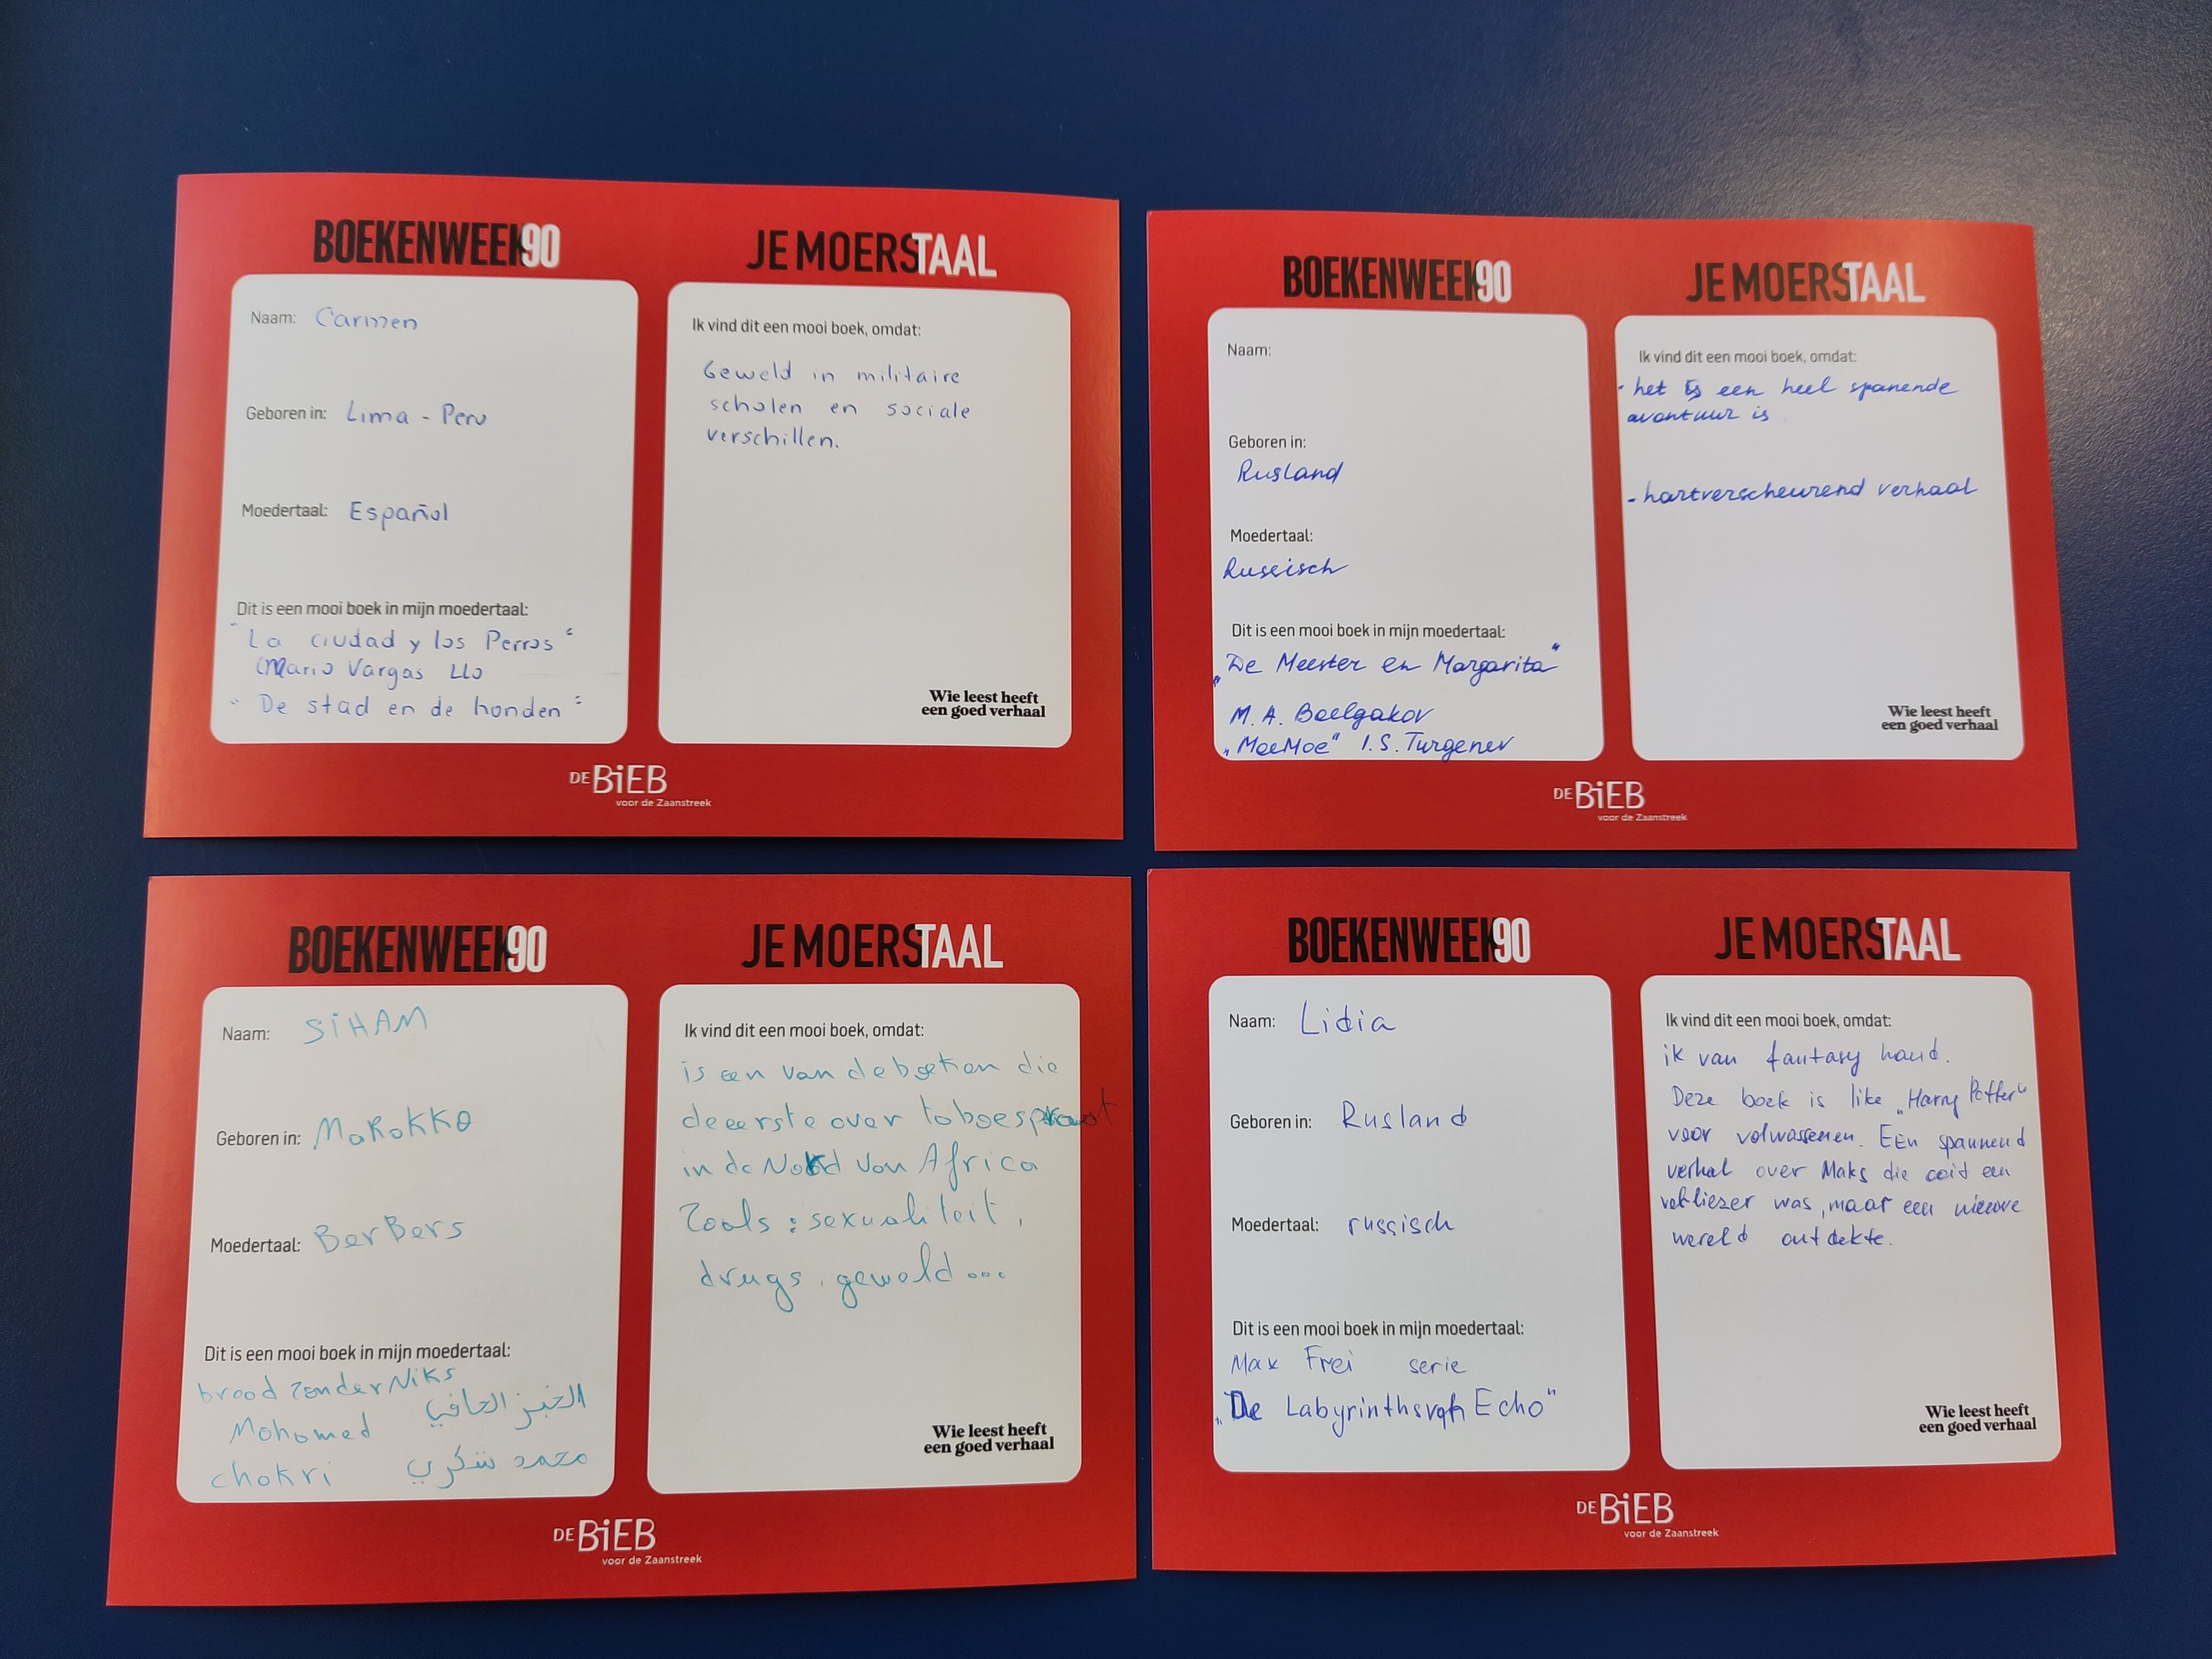 BOEKENWEEK90
JE MOERSTAAL
Naam: Carmen
Geboren in: Lima - Peru
Moedertaal: Español
Dit is een mooi boek in mijn moedertaal:
"La ciudad y los Perros"
(Mario Vargas Llo
"De stad en de honden"
Ik vind dit een mooi boek, omdat:
Geweld in militaire
scholen en sociale
verschillen.
Wie leest heeft
een goed verhaal
DE BiEB
voor de Zaanstreek
BOEKENWEEK90
JE MOERSTAAL
Naam:
Geboren in:
Rusland
Moedertaal:
Russisch
Dit is een mooi boek in mijn moedertaal:
„De Meester en Margarita"
M. A. Boelgakov
„MoeMoe" I. S. Turgenev
Ik vind dit een mooi boek, omdat:
- het is een heel spanende
avontuur is.
- hartverscheurend verhaal
Wie leest heeft
een goed verhaal
DE BiEB
voor de Zaanstreek
BOEKENWEEK90
JE MOERSTAAL
Naam: SiHAM
Geboren in: MaRoKKo
Moedertaal: BerBers
Dit is een mooi boek in mijn moedertaal:
brood zonder Niks
الخبز الحافي
Mohamed
chokri محمد شكري
Ik vind dit een mooi boek, omdat:
is een van de boeken die
de eerste over taboes praat
in de Noord van Africa
Zoals : sexualiteit,
drugs, geweld...
Wie leest heeft
een goed verhaal
DE BiEB
voor de Zaanstreek
BOEKENWEEK90
JE MOERSTAAL
Naam: Lidia
Geboren in: Rusland
Moedertaal: russisch
Dit is een mooi boek in mijn moedertaal:
Max Frei serie
„De Labyrinths van Echo"
Ik vind dit een mooi boek, omdat:
ik van fantasy houd.
Deze boek is like „Harry Potter"
voor volwassenen. EEn spannend
verhal over Maks die ooit een
verliezer was, maar een nieuwe
wereld ontdekte.
Wie leest heeft
een goed verhaal
DE BiEB
voor de Zaanstreek